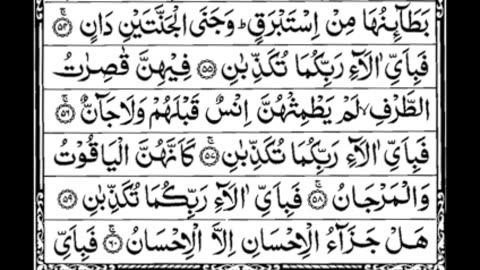 بَطَآئِنُهَا مِنْ اِسْتَبْرَقٍ ؕ وَجَنَی الْجَنَّتَیْنِ دَانٍ ۚ﴿۵۴﴾
فَبِاَیِّ اٰلَآءِ رَبِّكُمَا تُكَذِّبٰنِ ﴿۵۵﴾ فِیْهِنَّ قٰصِرٰتُ
الطَّرْفِ ۙ لَمْ یَطْمِثْهُنَّ اِنْسٌ قَبْلَهُمْ وَلَا جَآنٌّ ۚ﴿۵۶﴾
فَبِاَیِّ اٰلَآءِ رَبِّكُمَا تُكَذِّبٰنِ ۚ﴿۵۷﴾ كَاَنَّهُنَّ الْیَاقُوْتُ
وَالْمَرْجَانُ ۚ﴿۵۸﴾ فَبِاَیِّ اٰلَآءِ رَبِّكُمَا تُكَذِّبٰنِ ﴿۵۹﴾
هَلْ جَزَآءُ الْاِحْسَانِ اِلَّا الْاِحْسَانُ ۚ﴿۶۰﴾ فَبِاَیِّ